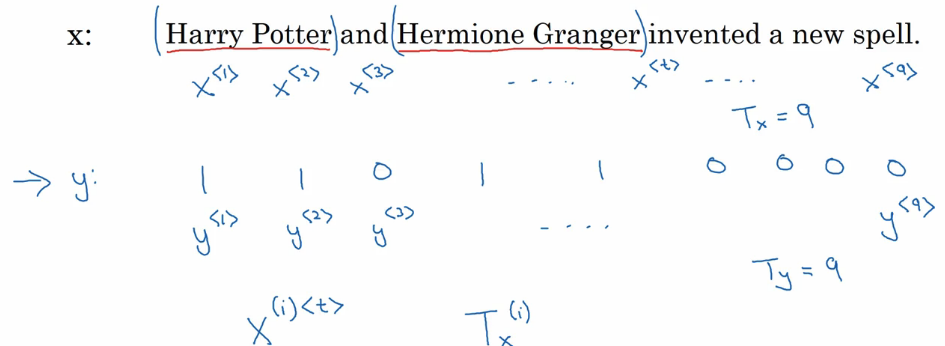 x: (Harry Potter) and (Hermione Granger) invented a new spell.
x<1> x<2> x<3> ..... x<t> .... x<9>
Tx = 9
→ y: 1 1 0 1 1 0 0 0 0
y<1> y<2> y<3> ..... y<9>
Ty = 9
X(i)<t> Tx(i)